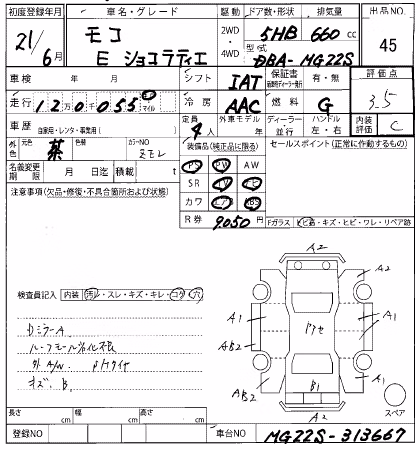 初度登録年月 車名・グレード 駆動 ドア数・形状 排気量 出品NO
21/6月 モコ E ショコラティエ 2WD 4WD 5HB 660cc 45
型式 DBA-MG22S
車検 年 月 シフト IAT 保証書 有・無 評価点
走行 120,055 km マイル 冷房 AAC 燃料 G 3.5
車歴 自家用・レンタ・事業用( ) 定員 4人 外車モデル 年 ディーラー 並行 ハンドル 左・右 内装評価 C
外色 元色 茶 色替 カラーNO ZEL 装備品(純正品に限る) セールスポイント(正常に作動するもの)
名義変更期限 月 日迄 積載 t PS PW AW
注意事項(欠品・修復・不具合箇所および状態) SR TV ナビ
カワ エアB ABS
R券 9,050円 Fガラス ヒビ・キズ・ヒビ・ワレ・リペア跡
A2
A2
検査員記入 内装 汚れ・スレ・キズ・キレ・コゲ・穴
A1 A1
Dミラー A
ルーフモール劣化不良 AB2 A2
外A/W
キズ、B AB2 A1
B1
A2 スペア
長さ cm 幅 cm 高さ cm
登録NO 車台NO MG22S-313667